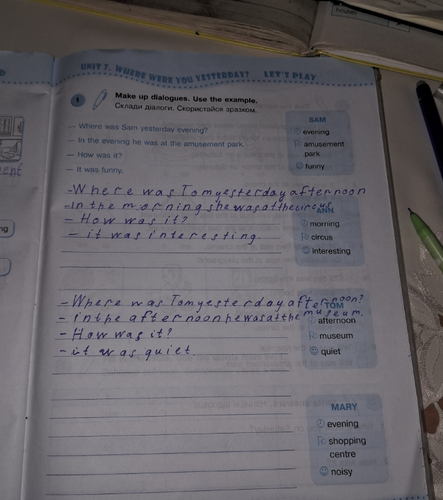 UNIT 7. WHERE WERE YOU YESTERDAY? LET'S PLAY
1 Make up dialogues. Use the example.
Склади діалоги. Скористайся зразком.
– Where was Sam yesterday evening?
– In the evening he was at amusement park.
– How was it?
– It was funny.
SAM
evening
amusement
park
funny
- Where was Tom yesterday afternoon
- In the morning she was at the circus
- How was it?
- it was interesting
ANN
morning
circus
interesting
- Where was Tom yesterday afternoon?
- in the afternoon he was at the museum.
- How was it?
- it was quiet.
TOM
afternoon
museum
quiet
MARY
evening
shopping
centre
noisy